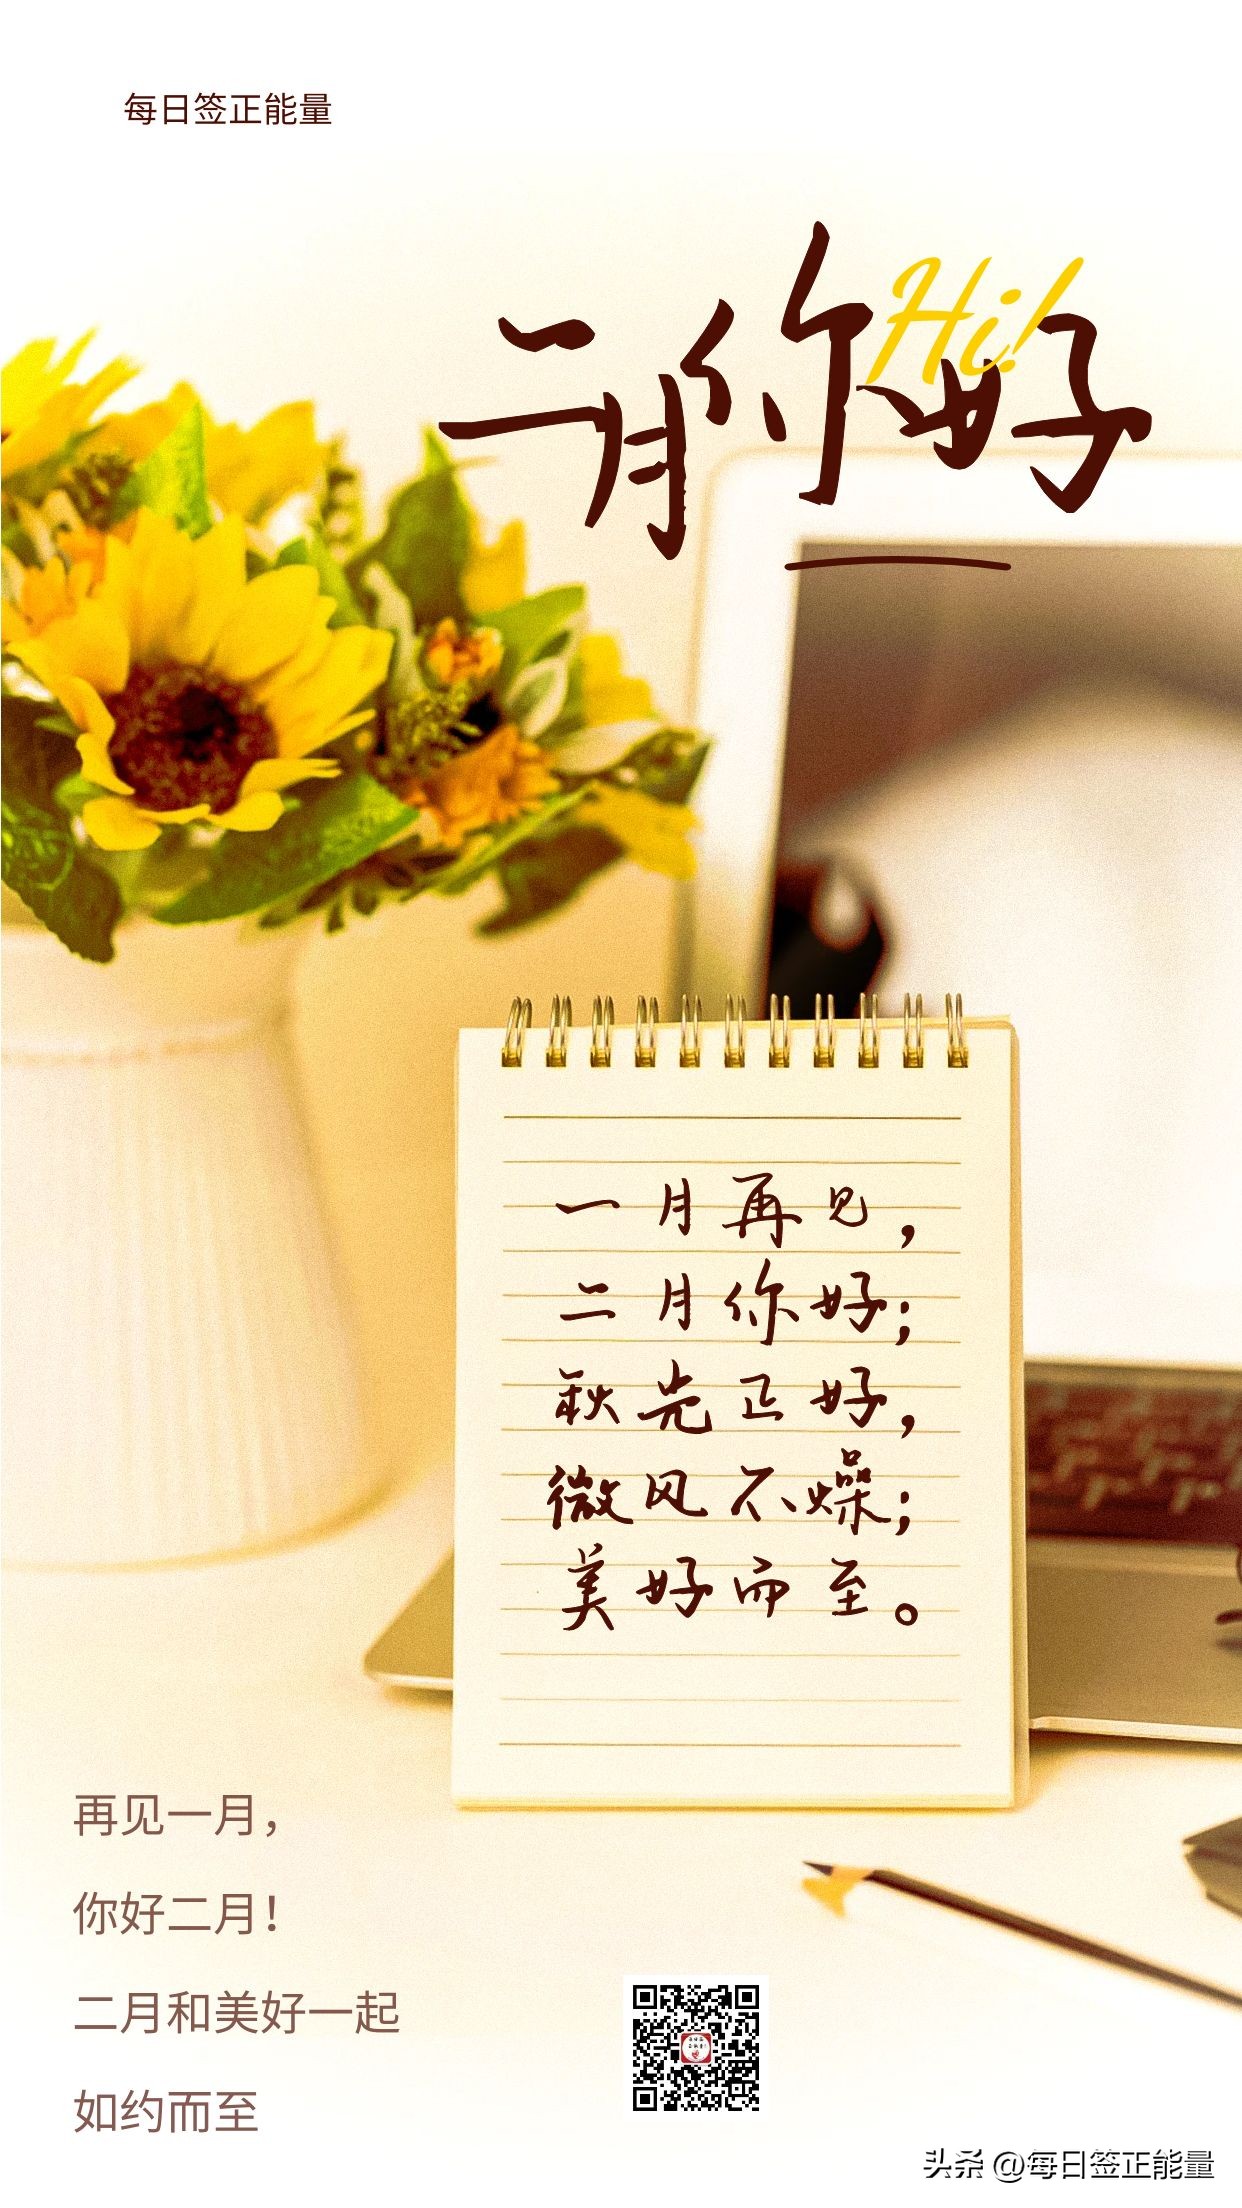 每日签正能量
二月你好
Hi!
一月再见，
二月你好；
秋光正好，
微风不燥；
美好而至。
再见一月，
你好二月！
二月和美好一起
如约而至
头条 @每日签正能量